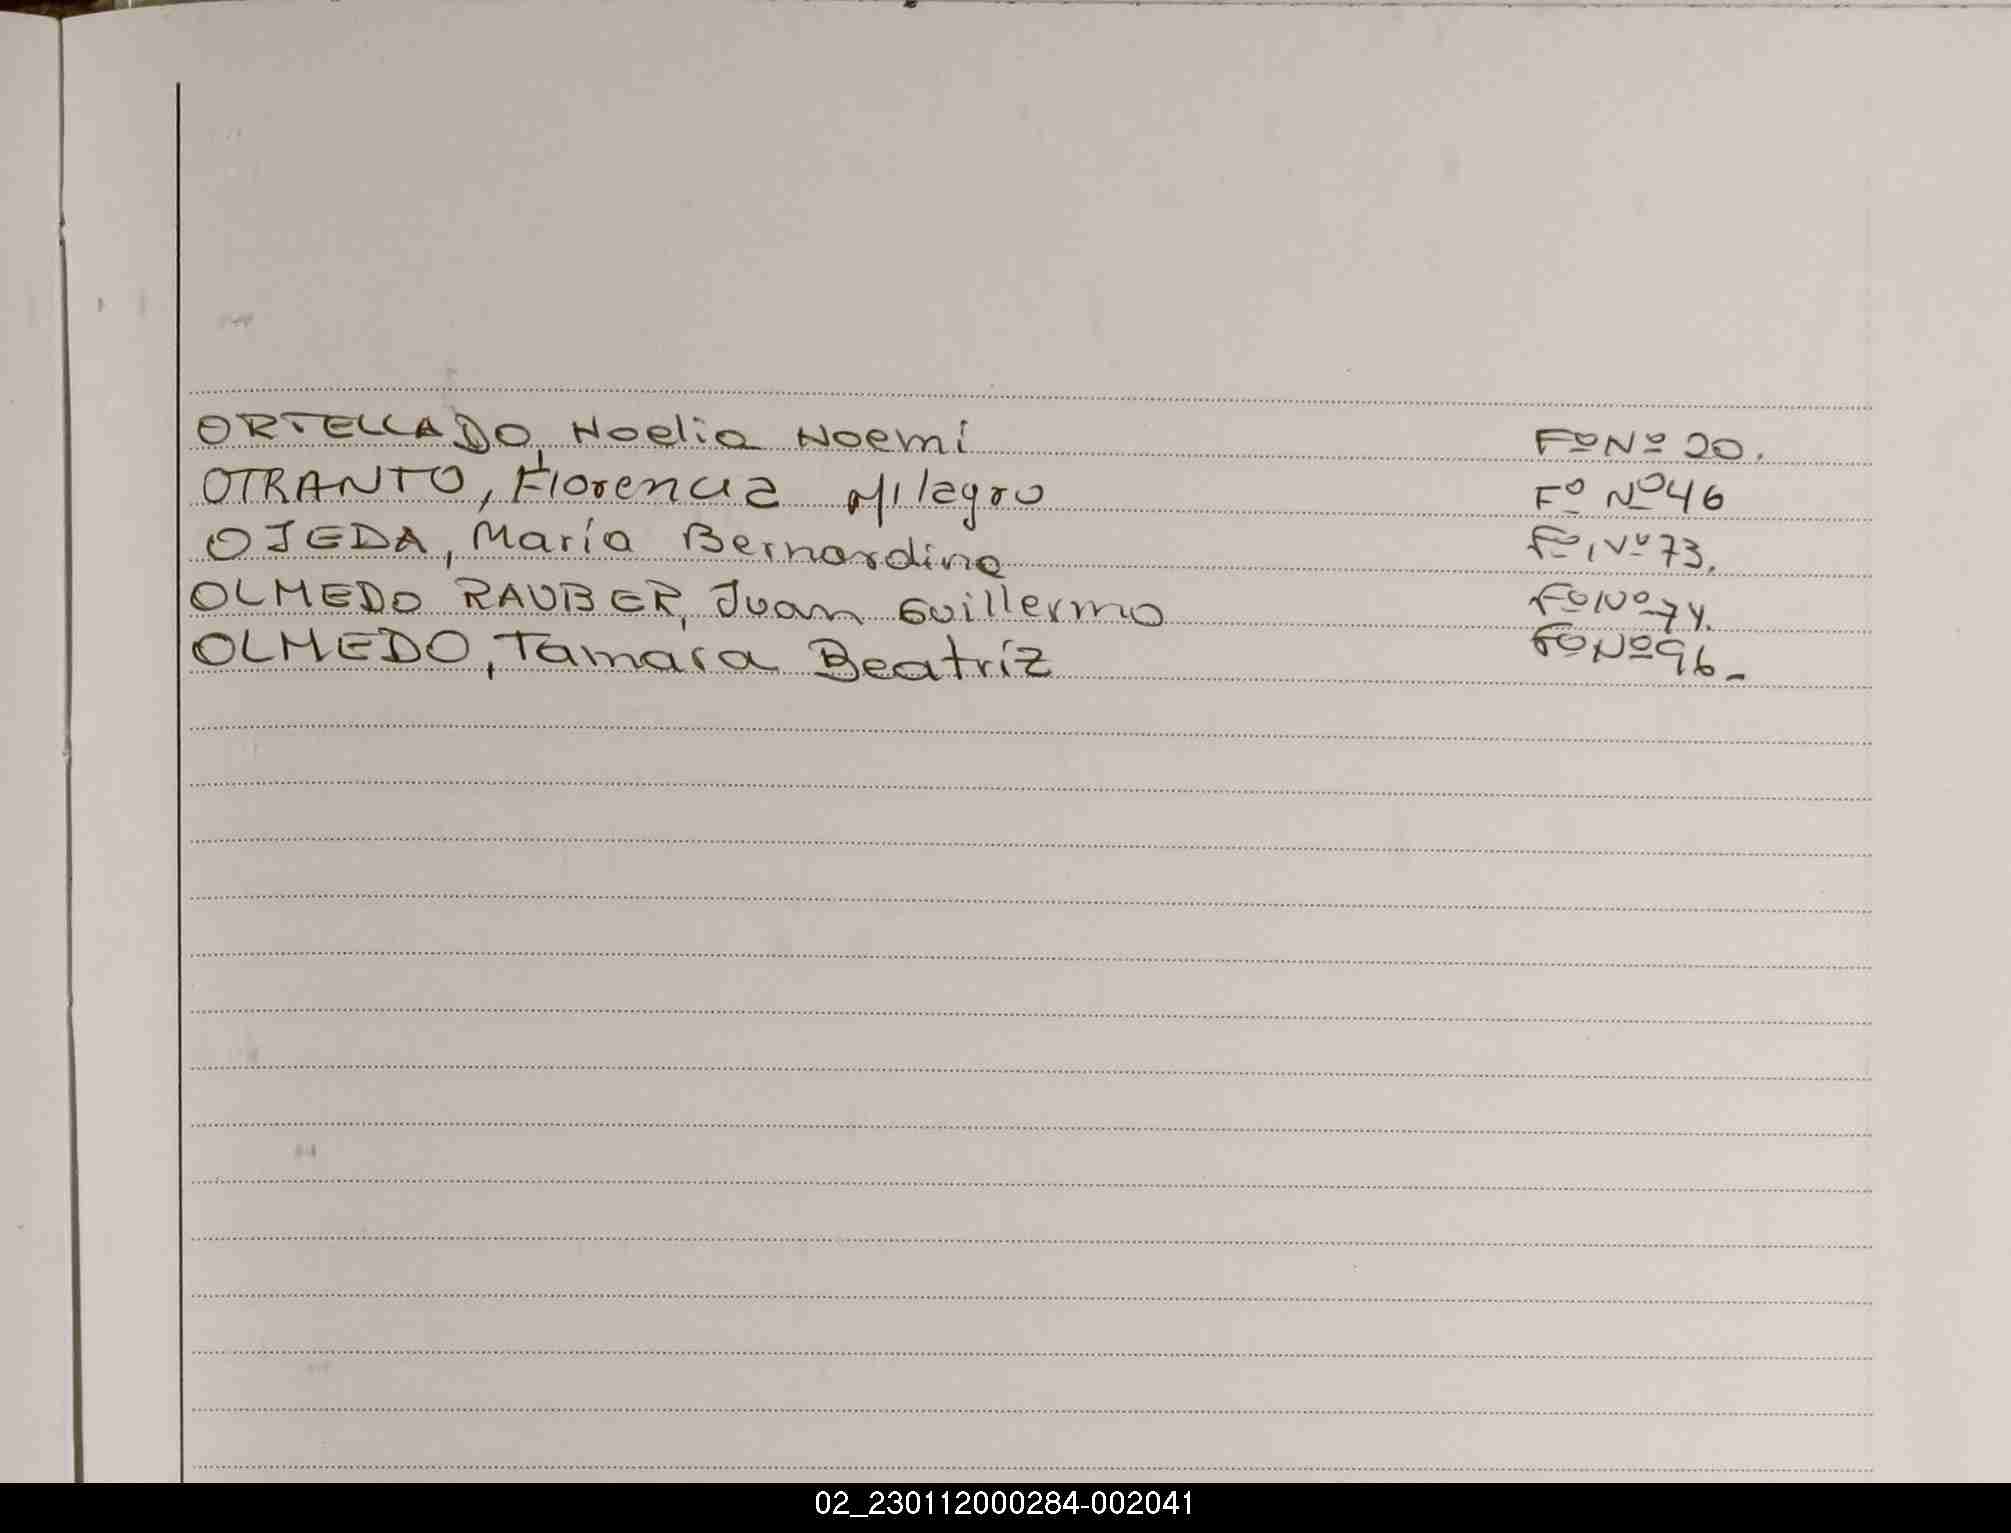 ORTELLADO, Noelia Noemí Fº Nº 20.
OTRANTO, Florencia Milagro Fº Nº 46
OJEDA, María Bernardina Fº Nº 73.
OLMEDO RAUBER, Juan Guillermo Fº Nº 74.
OLMEDO, Tamara Beatríz Fº Nº 96-
02_230112000284-002041